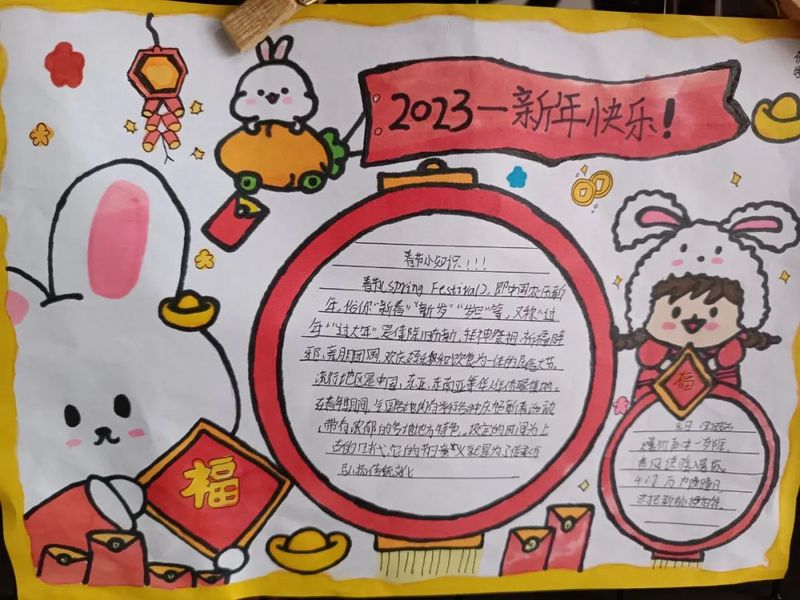 2023—新年快乐!
春节小知识!!!
春节(Spring Festival),即中国农历新
年,俗你"新春""新岁""岁旦"等,又称"过
年""过大年"是集除旧布新,拜神祭祖,祈福辟
邪,亲朋团圆,欢庆娱乐和饮食为一体的民俗大节。
流行地区是中国,东亚,东南亚等华人华侨聚集地。
在春节期间,全国各地均有举行各种庆贺新春活动
,带有浓郁的各地地方特色。
弘扬传统文化
福
福
元日
爆竹声中一岁除,
春风送暖入屠苏。
千门万户曈曈日
总把新桃换旧符